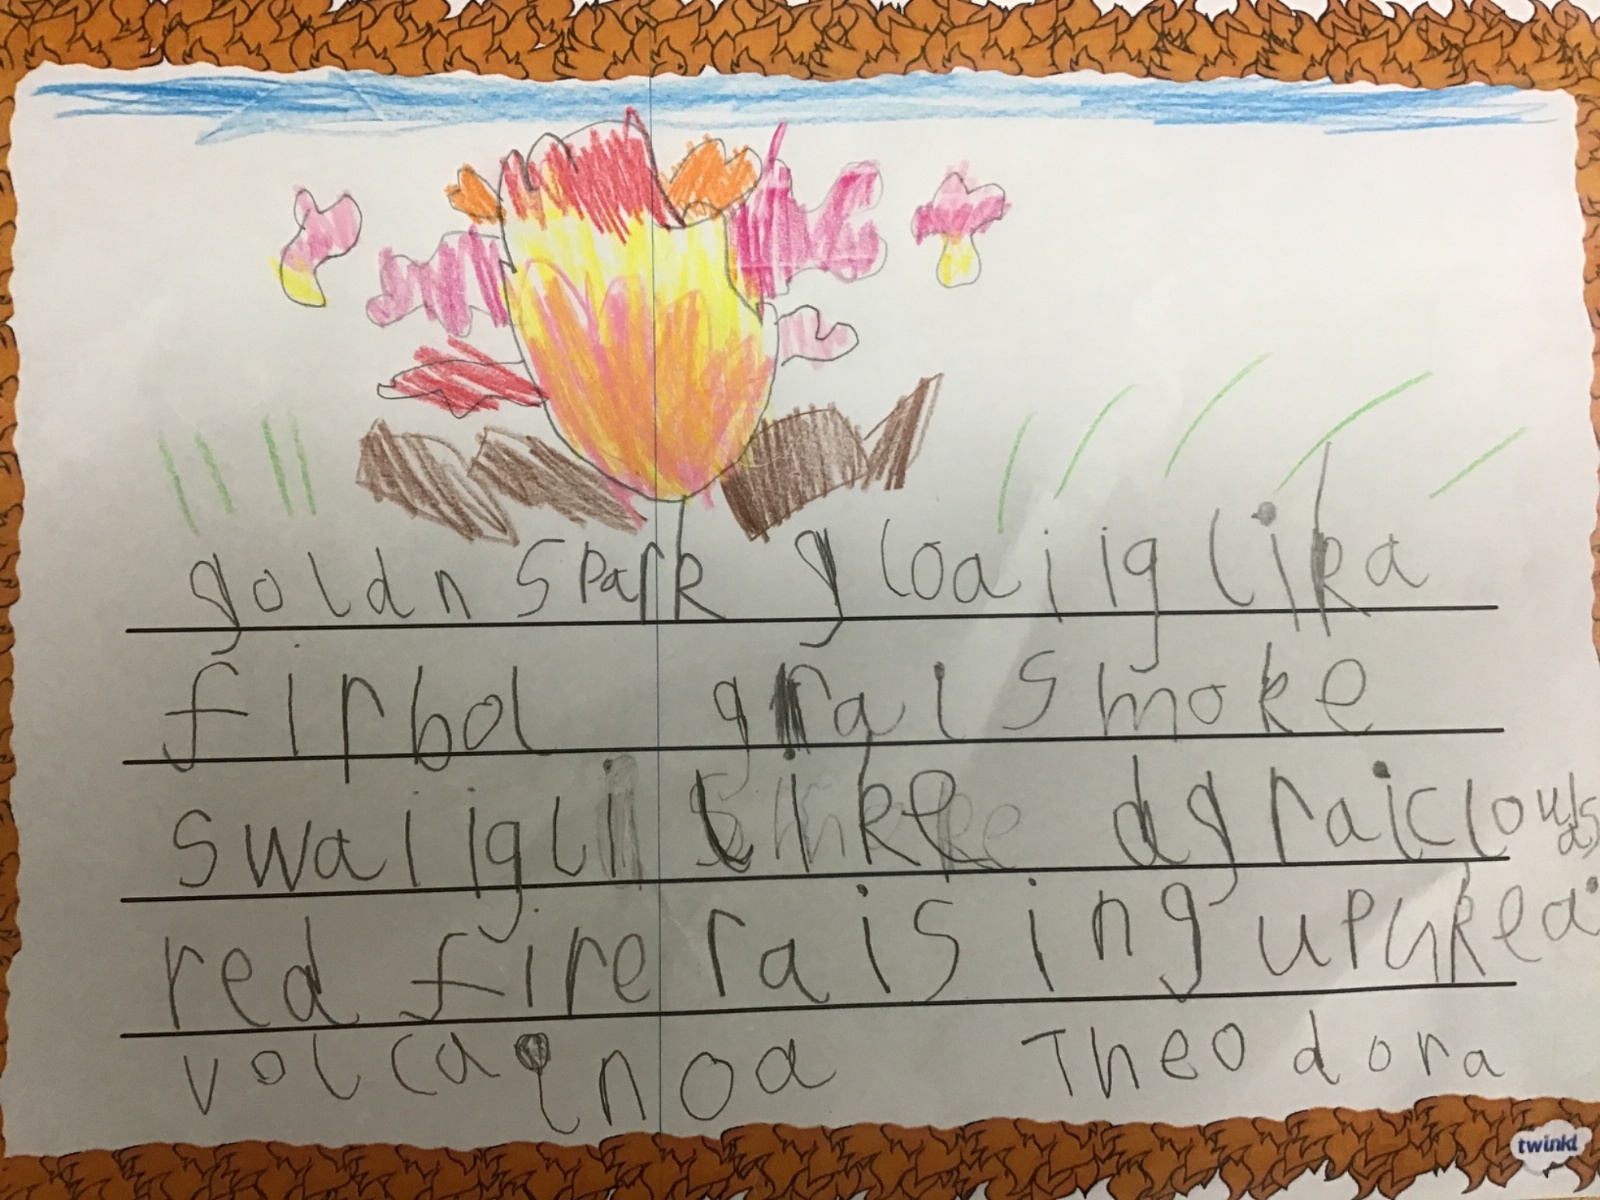 goldn spark gloaiig lika
firbol grai smoke
swaiigli like dgraiclouds
red fire raising up
volcanoa Theodora
twinkl